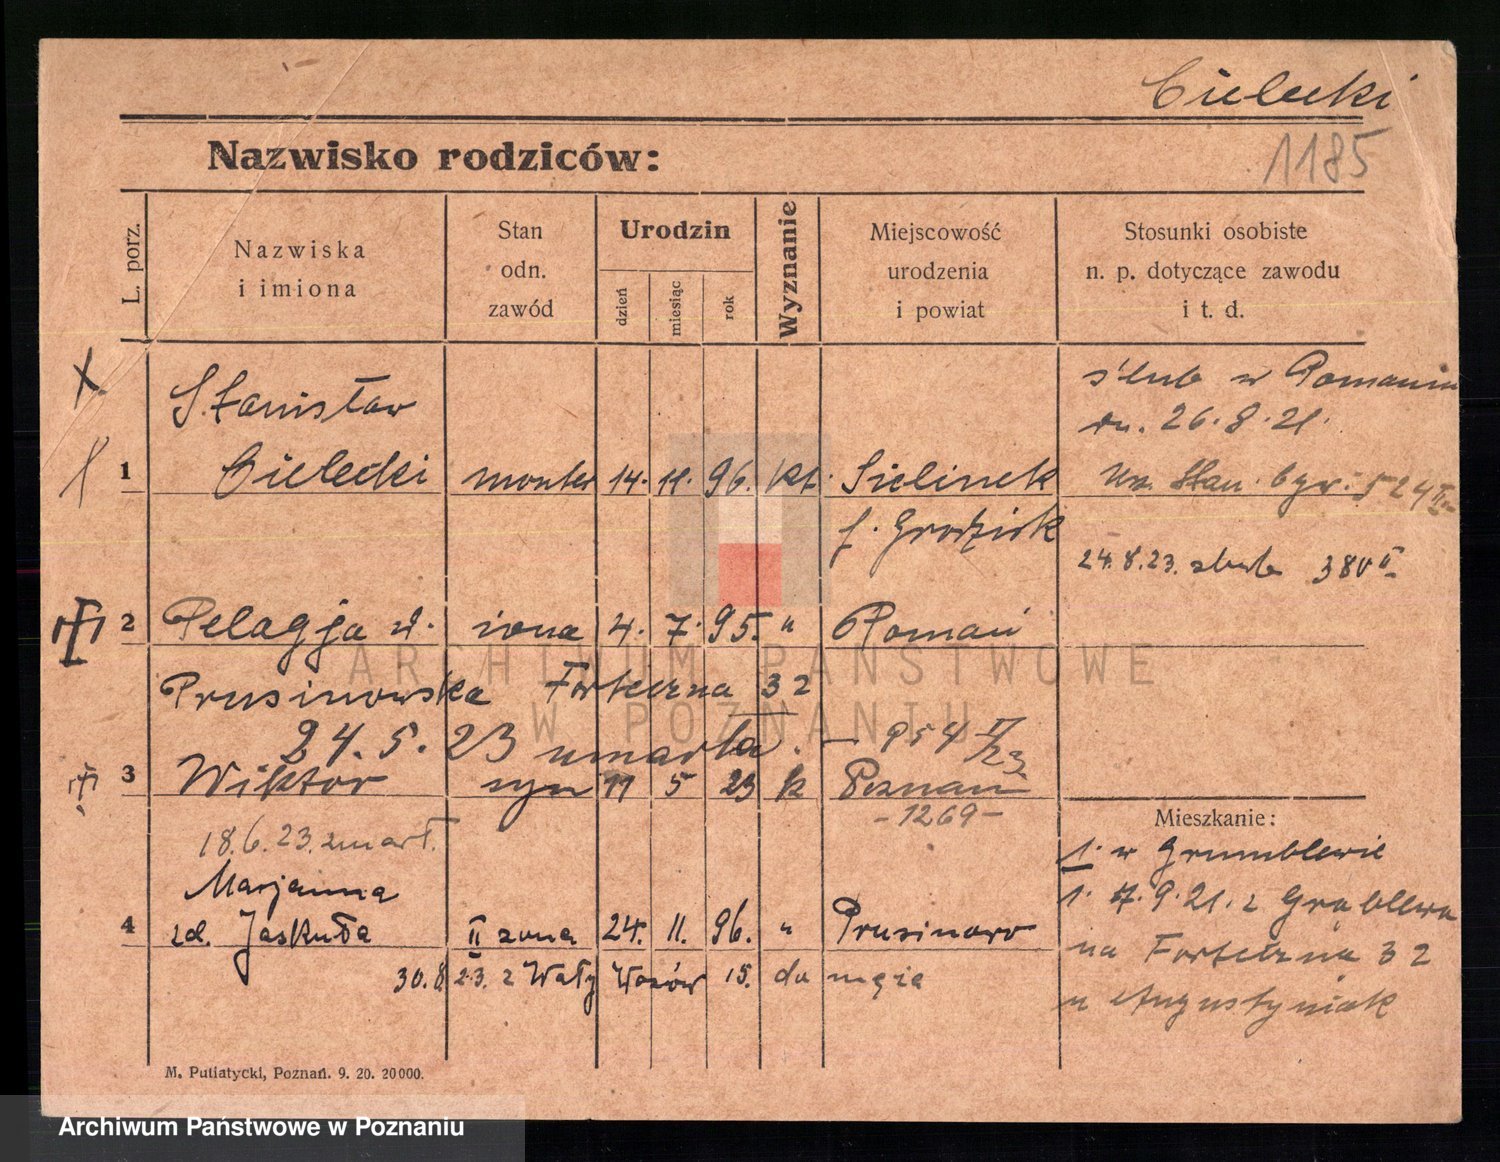 Cielecki
Nazwisko rodziców:
1185
L. porz.
Nazwiska
i imiona
Stan
odn.
zawód
Urodzin
dzień
miesiąc
rok
Wyznanie
Miejscowość
urodzenia
i powiat
Stosunki osobiste
n. p. dotyczące zawodu
i t. d.
Stanisław
1 Cielecki monter 14. 11. 96. kt. Sielinek
p. Grodzisk
ślub w Poznaniu
dn. 26.8.21.
Urz. Stan. 524 II
24.8.23. 380 II
2 Pelagja d. żona 4. 7. 95. " Poznań
Prusinowska Forteczna 32
24. 5. 23 umarła. - 954 II/23
3 Wiktor syn 11 5 23 k Poznań
-1269-
18.6.23. zmarł.
Marjanna
4 zd. Jaskuła II żona 24. 11. 96. " Prusinowo
30.8.23. z Wały 15. do męża
Mieszkanie:
1. w
1. 17.9.21. z
na Forteczna 32
u Augustyniak
M. Putiatycki, Poznań. 9. 20. 20000.
ARCHIWUM PAŃSTWOWE
W POZNANIU
Archiwum Państwowe w Poznaniu